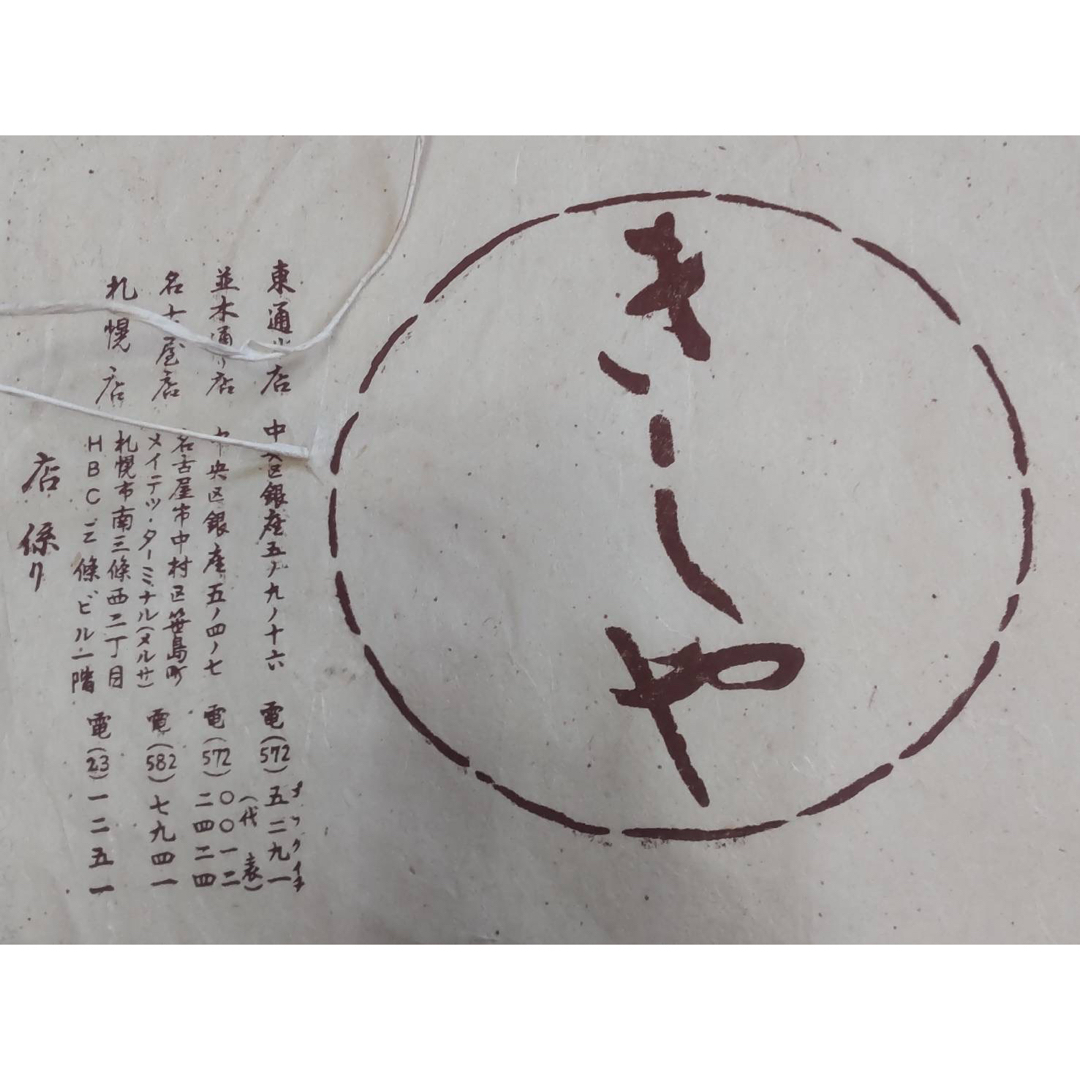 きしや
東通り店 中央区銀座五ノ九ノ十六 電(572)五二九一
(代表)
並木通り店 中央区銀座五ノ四ノ七 電(572)〇〇一二
二四二四
名古屋店 名古屋市中村区笹島町
メイテツ・ターミナル(メルサ) 電(582)七九四一
札幌店 札幌市南三條西二丁目
HBC三條ビル一階 電(23)一二五一
店 係り